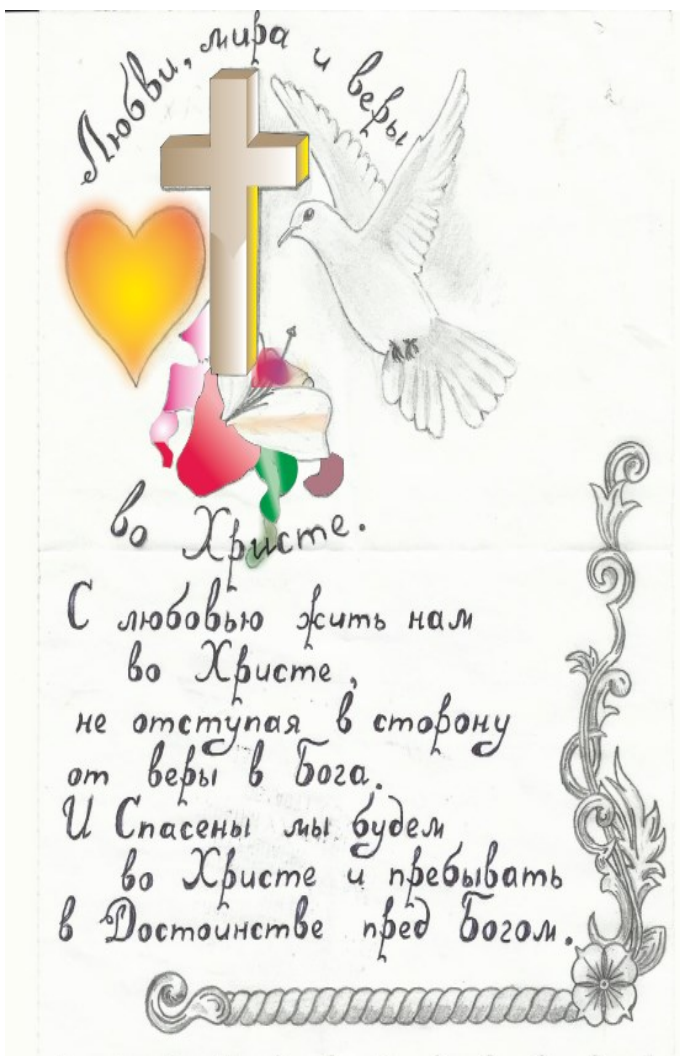 Любви, мира и веры
во Христе.
С любовью жить нам
во Христе,
не отступая в сторону
от веры в Бога.
И Спасены мы будем
во Христе и пребывать
в Достоинстве пред Богом.